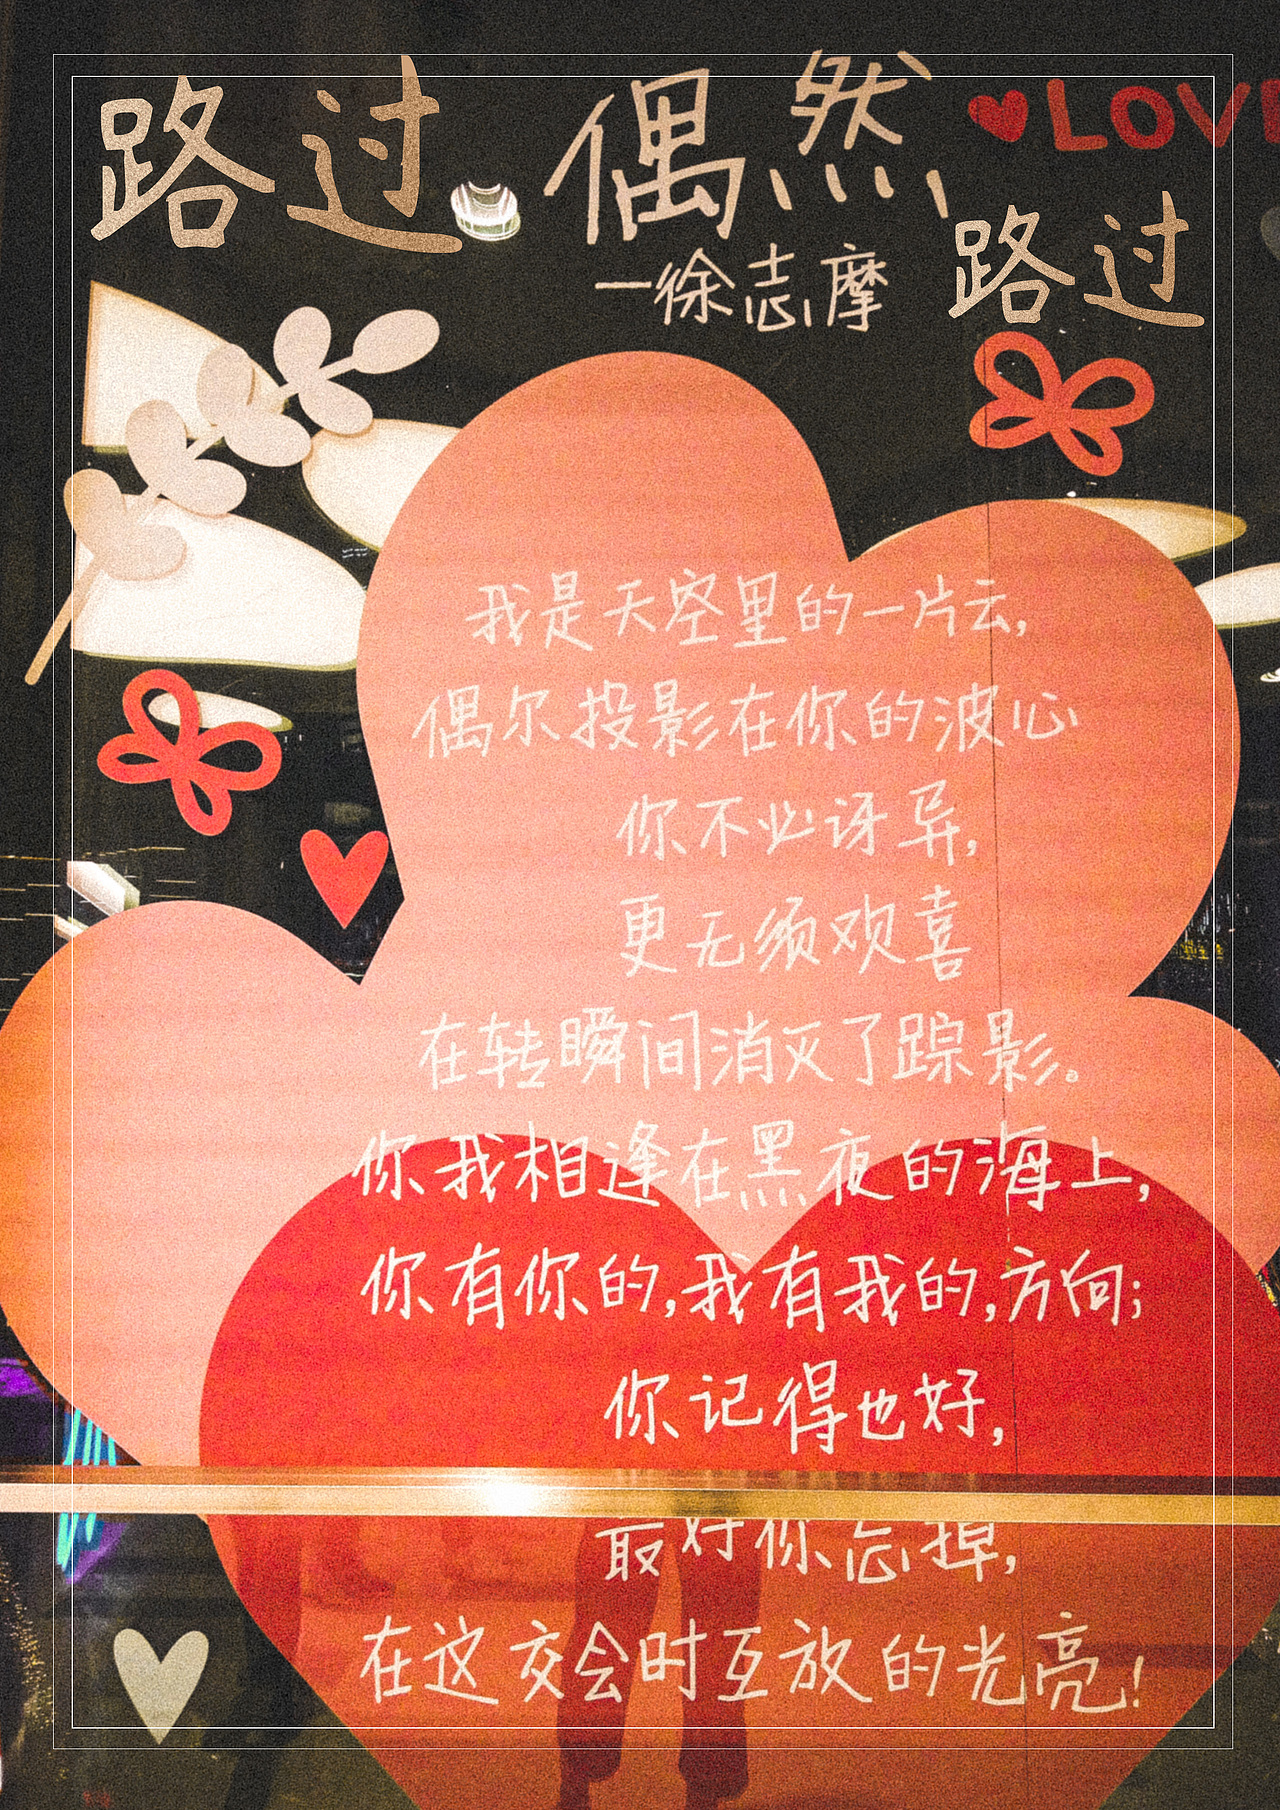 路过
偶然
LOVE
—徐志摩
路过
我是天空里的一片云,
偶尔投影在你的波心
你不必讶异,
更无须欢喜
在转瞬间消灭了踪影。
你我相逢在黑夜的海上,
你有你的,我有我的,方向;
你记得也好,
最好你忘掉,
在这交会时互放的光亮!